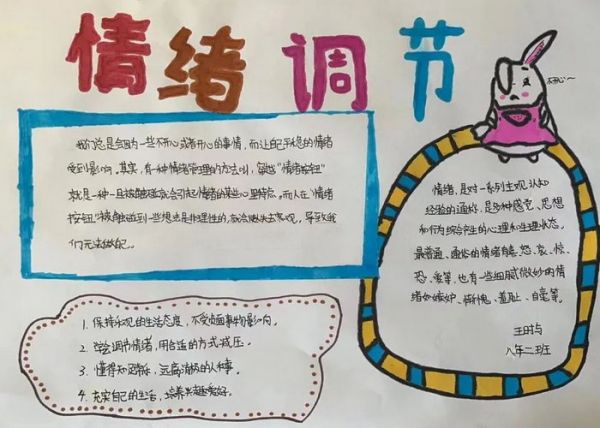 情绪调节
不开心~
我们总是会因为一些不开心或者开心的事情,而让自己平稳的情绪
受到影响,其实,有一种情绪管理的方法叫,掌控“情绪按钮”
就是一种一旦被触碰就会引起情绪的某些心里特点,而人在“情绪
按钮”被触碰到一些想也是非理性的,就会燃失去客观,导致我
们无法做自己。
1. 保持乐观的生活态度,不受负面事物影响。
2. 学会调节情绪,用合适的方式减压。
3. 懂得知足常乐,远离消极的人和事。
4. 充实自己的生活,培养兴趣爱好。
情绪,是对一系列主观认知
经验的通称,是多种感觉、思想
和行为综合产生的心理和生理状态。
最普遍、通俗的情绪有喜、怒、哀、惊、
恐、爱等,也有一些细腻微妙的情
绪如嫉妒、惭愧、羞耻、自豪等。
八年二班